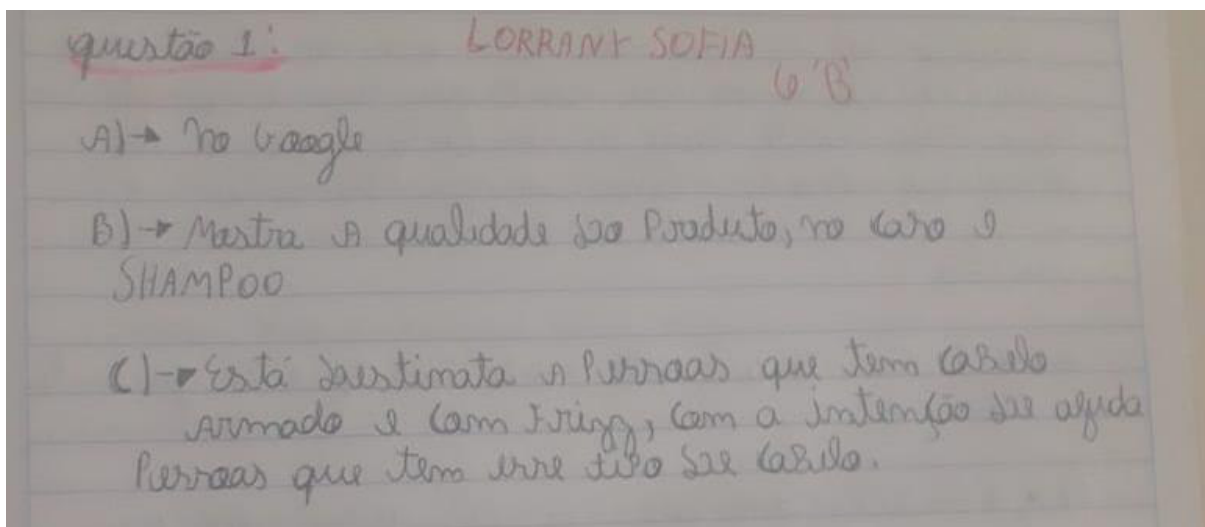 questão 1: LORRANY SOFIA
6 'B'
A)→ No Google
B)→ Mostra A qualidade do Produto, no caso o
SHAMPOO
C)→ Está destinata A Pessoas que tem cabelo
Armado e com Frizz, com a intenção de ajuda
Pessoas que tem esse tipo de cabelo.